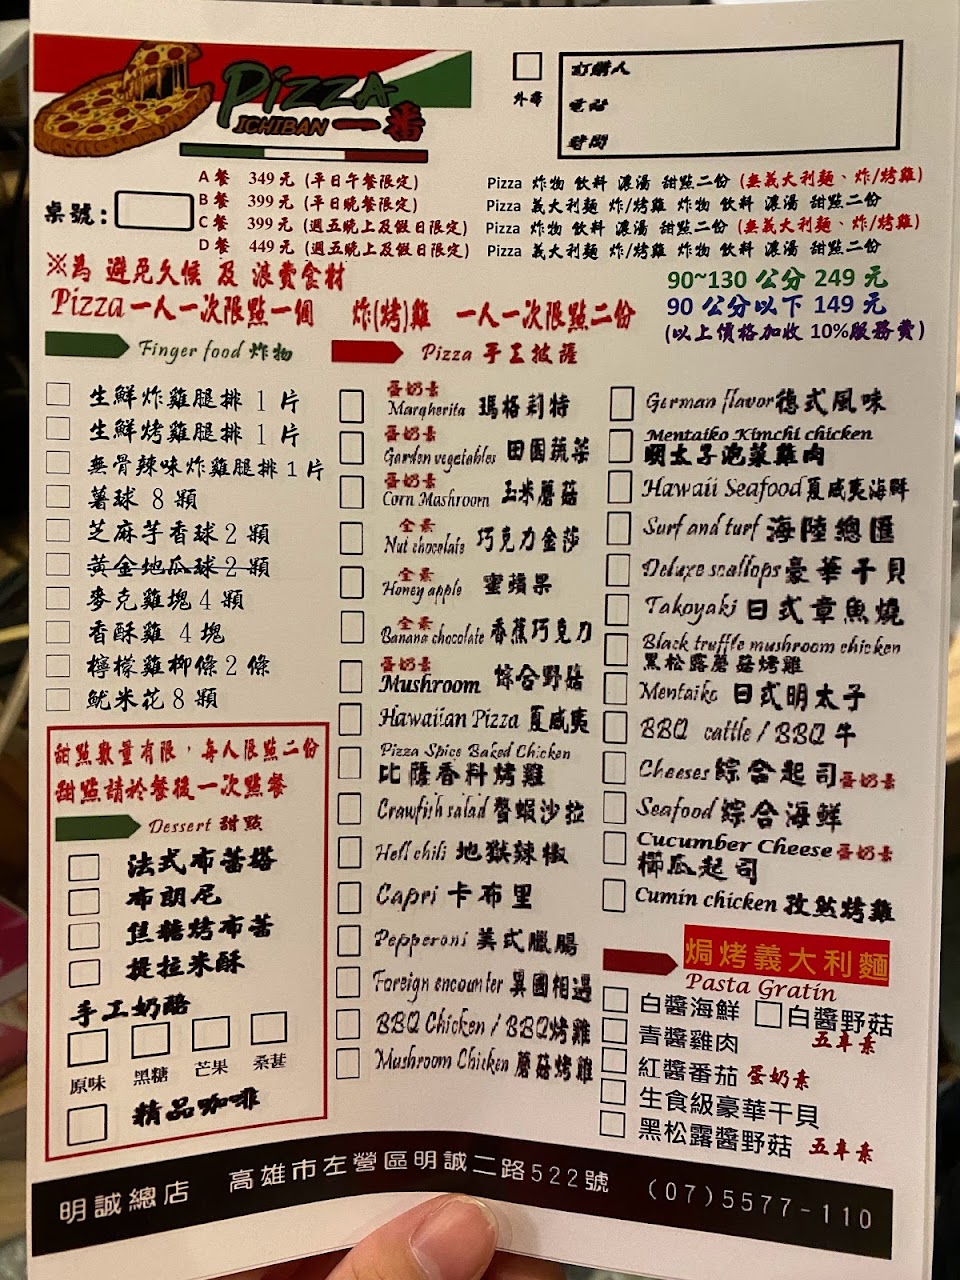 Pizza
ICHIBAN 一番
外帶
訂購人
電話
時間
桌號:
A 餐 349 元 (平日午餐限定) Pizza 炸物 飲料 濃湯 甜點二份 (無義大利麵、炸/烤雞)
B 餐 399 元 (平日晚餐限定) Pizza 義大利麵 炸/烤雞 炸物 飲料 濃湯 甜點二份
C 餐 399 元 (週五晚上及假日限定) Pizza 炸物 飲料 濃湯 甜點二份 (無義大利麵、炸/烤雞)
D 餐 449 元 (週五晚上及假日限定) Pizza 義大利麵 炸/烤雞 炸物 飲料 濃湯 甜點二份
※為 避免久候 及 浪費食材
Pizza 一人一次限點一個 炸(烤)雞 一人一次限點二份
90~130 公分 249 元
90 公分以下 149 元
(以上價格加收 10%服務費)
Finger food 炸物
生鮮炸雞腿排 1 片
生鮮烤雞腿排 1 片
無骨辣味炸雞腿排 1 片
薯球 8 顆
芝麻芋香球 2 顆
黃金地瓜球 2 顆
麥克雞塊 4 顆
香酥雞 4 塊
檸檬雞柳條 2 條
魷米花 8 顆
甜點數量有限，每人限點二份
甜點請於餐後一次點餐
Dessert 甜點
法式布蕾塔
布朗尼
焦糖烤布蕾
提拉米酥
手工奶酪
原味 黑糖 芒果 桑葚
精品咖啡
Pizza 手工披薩
蛋奶素
Margherita 瑪格莉特
蛋奶素
Garden vegetables 田園蔬菜
蛋奶素
Corn Mashroom 玉米蘑菇
全素
Nut chocolate 巧克力金莎
全素
Honey apple 蜜蘋果
全素
Banana chocolate 香蕉巧克力
蛋奶素
Mushroom 綜合野菇
Hawaiian Pizza 夏威夷
Pizza Spice Baked Chicken
比薩香料烤雞
Crawfish salad 螯蝦沙拉
Hell chili 地獄辣椒
Capri 卡布里
Pepperoni 美式臘腸
Foreign encounter 異國相遇
BBQ Chicken / BBQ烤雞
Mushroom Chicken 蘑菇烤雞
German flavor 德式風味
Mentaiko Kimchi chicken
明太子泡菜雞肉
Hawaii Seafood 夏威夷海鮮
Surf and turf 海陸總匯
Deluxe scallops 豪華干貝
Takoyaki 日式章魚燒
Black truffle mushroom chicken
黑松露蘑菇烤雞
Mentaiko 日式明太子
BBQ cattle / BBQ 牛
Cheeses 綜合起司 蛋奶素
Seafood 綜合海鮮
Cucumber Cheese 蛋奶素
櫛瓜起司
Cumin chicken 孜然烤雞
焗烤義大利麵
Pasta Gratin
白醬海鮮 白醬野菇
五辛素
青醬雞肉
紅醬番茄 蛋奶素
生食級豪華干貝
黑松露醬野菇 五辛素
明誠總店 高雄市左營區明誠二路522號 (07)5577-110